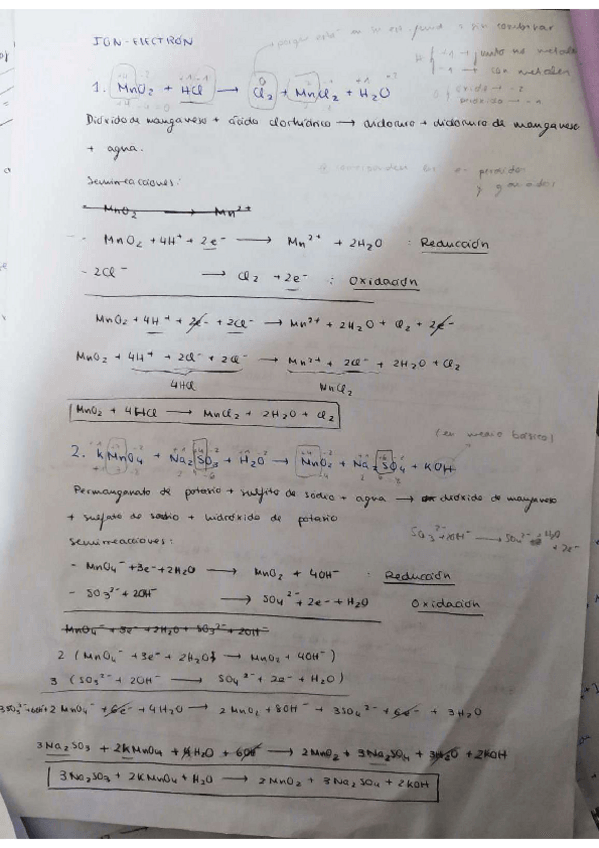 ION-ELECTRÓN
1. MnO₂ + HCl ⟶ Cl₂ + MnCl₂ + H₂O
Dióxido de manganeso + ácido clorhídrico ⟶ dicloruro + dicloruro de manganeso
+ agua.
Semirreacciones:
MnO₂ ⟶ Mn²⁺
- MnO₂ + 4H⁺ + 2e⁻ ⟶ Mn²⁺ + 2H₂O : Reducción
- 2Cl⁻ ⟶ Cl₂ + 2e⁻ : Oxidación
MnO₂ + 4H⁺ + 2e⁻ + 2Cl⁻ ⟶ Mn²⁺ + 2H₂O + Cl₂ + 2e⁻
MnO₂ + 4H⁺ + 2Cl⁻ + 2Cl⁻ ⟶ Mn²⁺ + 2Cl⁻ + 2H₂O + Cl₂
4HCl MnCl₂
MnO₂ + 4HCl ⟶ MnCl₂ + 2H₂O + Cl₂
(en medio básico)
2. KMnO₄ + Na₂SO₃ + H₂O ⟶ MnO₂ + Na₂SO₄ + KOH
Permanganato de potasio + sulfito de sodio + agua ⟶ dióxido de manganeso
+ sulfato de sodio + hidróxido de potasio
Semirreacciones:
- MnO₄⁻ + 3e⁻ + 2H₂O ⟶ MnO₂ + 4OH⁻ : Reducción
- SO₃²⁻ + 2OH⁻ ⟶ SO₄²⁻ + 2e⁻ + H₂O Oxidación
MnO₄⁻ + 3e⁻ + 2H₂O + SO₃²⁻ + 2OH⁻
2 (MnO₄⁻ + 3e⁻ + 2H₂O ⟶ MnO₂ + 4OH⁻)
3 (SO₃²⁻ + 2OH⁻ ⟶ SO₄²⁻ + 2e⁻ + H₂O)
3SO₃²⁻ + 6OH⁻ + 2MnO₄⁻ + 6e⁻ + 4H₂O ⟶ 2MnO₂ + 8OH⁻ + 3SO₄²⁻ + 6e⁻ + 3H₂O
3Na₂SO₃ + 2KMnO₄ + 4H₂O + 6OH⁻ ⟶ 2MnO₂ + 3Na₂SO₄ + 3H₂O + 2KOH
3Na₂SO₃ + 2KMnO₄ + H₂O ⟶ 2MnO₂ + 3Na₂SO₄ + 2KOH